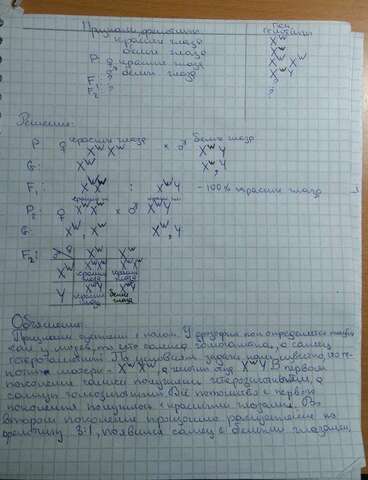 Признаки, фенотипы гены, генотипы
красные глаза Xᵂ
белые глаза Xʷ
P: ♀ красные глаза XᵂXᵂ
♂ белые глаза XʷY
F₁: ? ?
F₂: ? ?
Решение:
P ♀ красные глаза XᵂXᵂ × ♂ белые глаза XʷY
G: Xᵂ Xʷ, Y
F₁: XᵂXʷ : XᵂY - 100% красные глаза
P₂: ♀ XᵂXʷ × ♂ XᵂY
G: Xᵂ, Xʷ Xᵂ, Y
F₂: Xᵂ Xʷ
Xᵂ XᵂXᵂ красные глаза XᵂXʷ красные глаза
Y XᵂY красные глаза XʷY белые глаза
Объяснение:
Признак сцепленный с полом. У дрозофил пол определяется
самка гомогаметна, а самец
гетерогаметный. По условию задачи нам известно, что ге-
нотип матери - XᵂXᵂ, а генотип отца XʷY. В первом
поколении самки получились гетерозиготными, а
самцы гомозиготными. Всё потомство в первом
поколении получилось с красными глазами. Во
втором поколении произошло расщепление по
фенотипу 3:1, появился самец с белыми глазами.